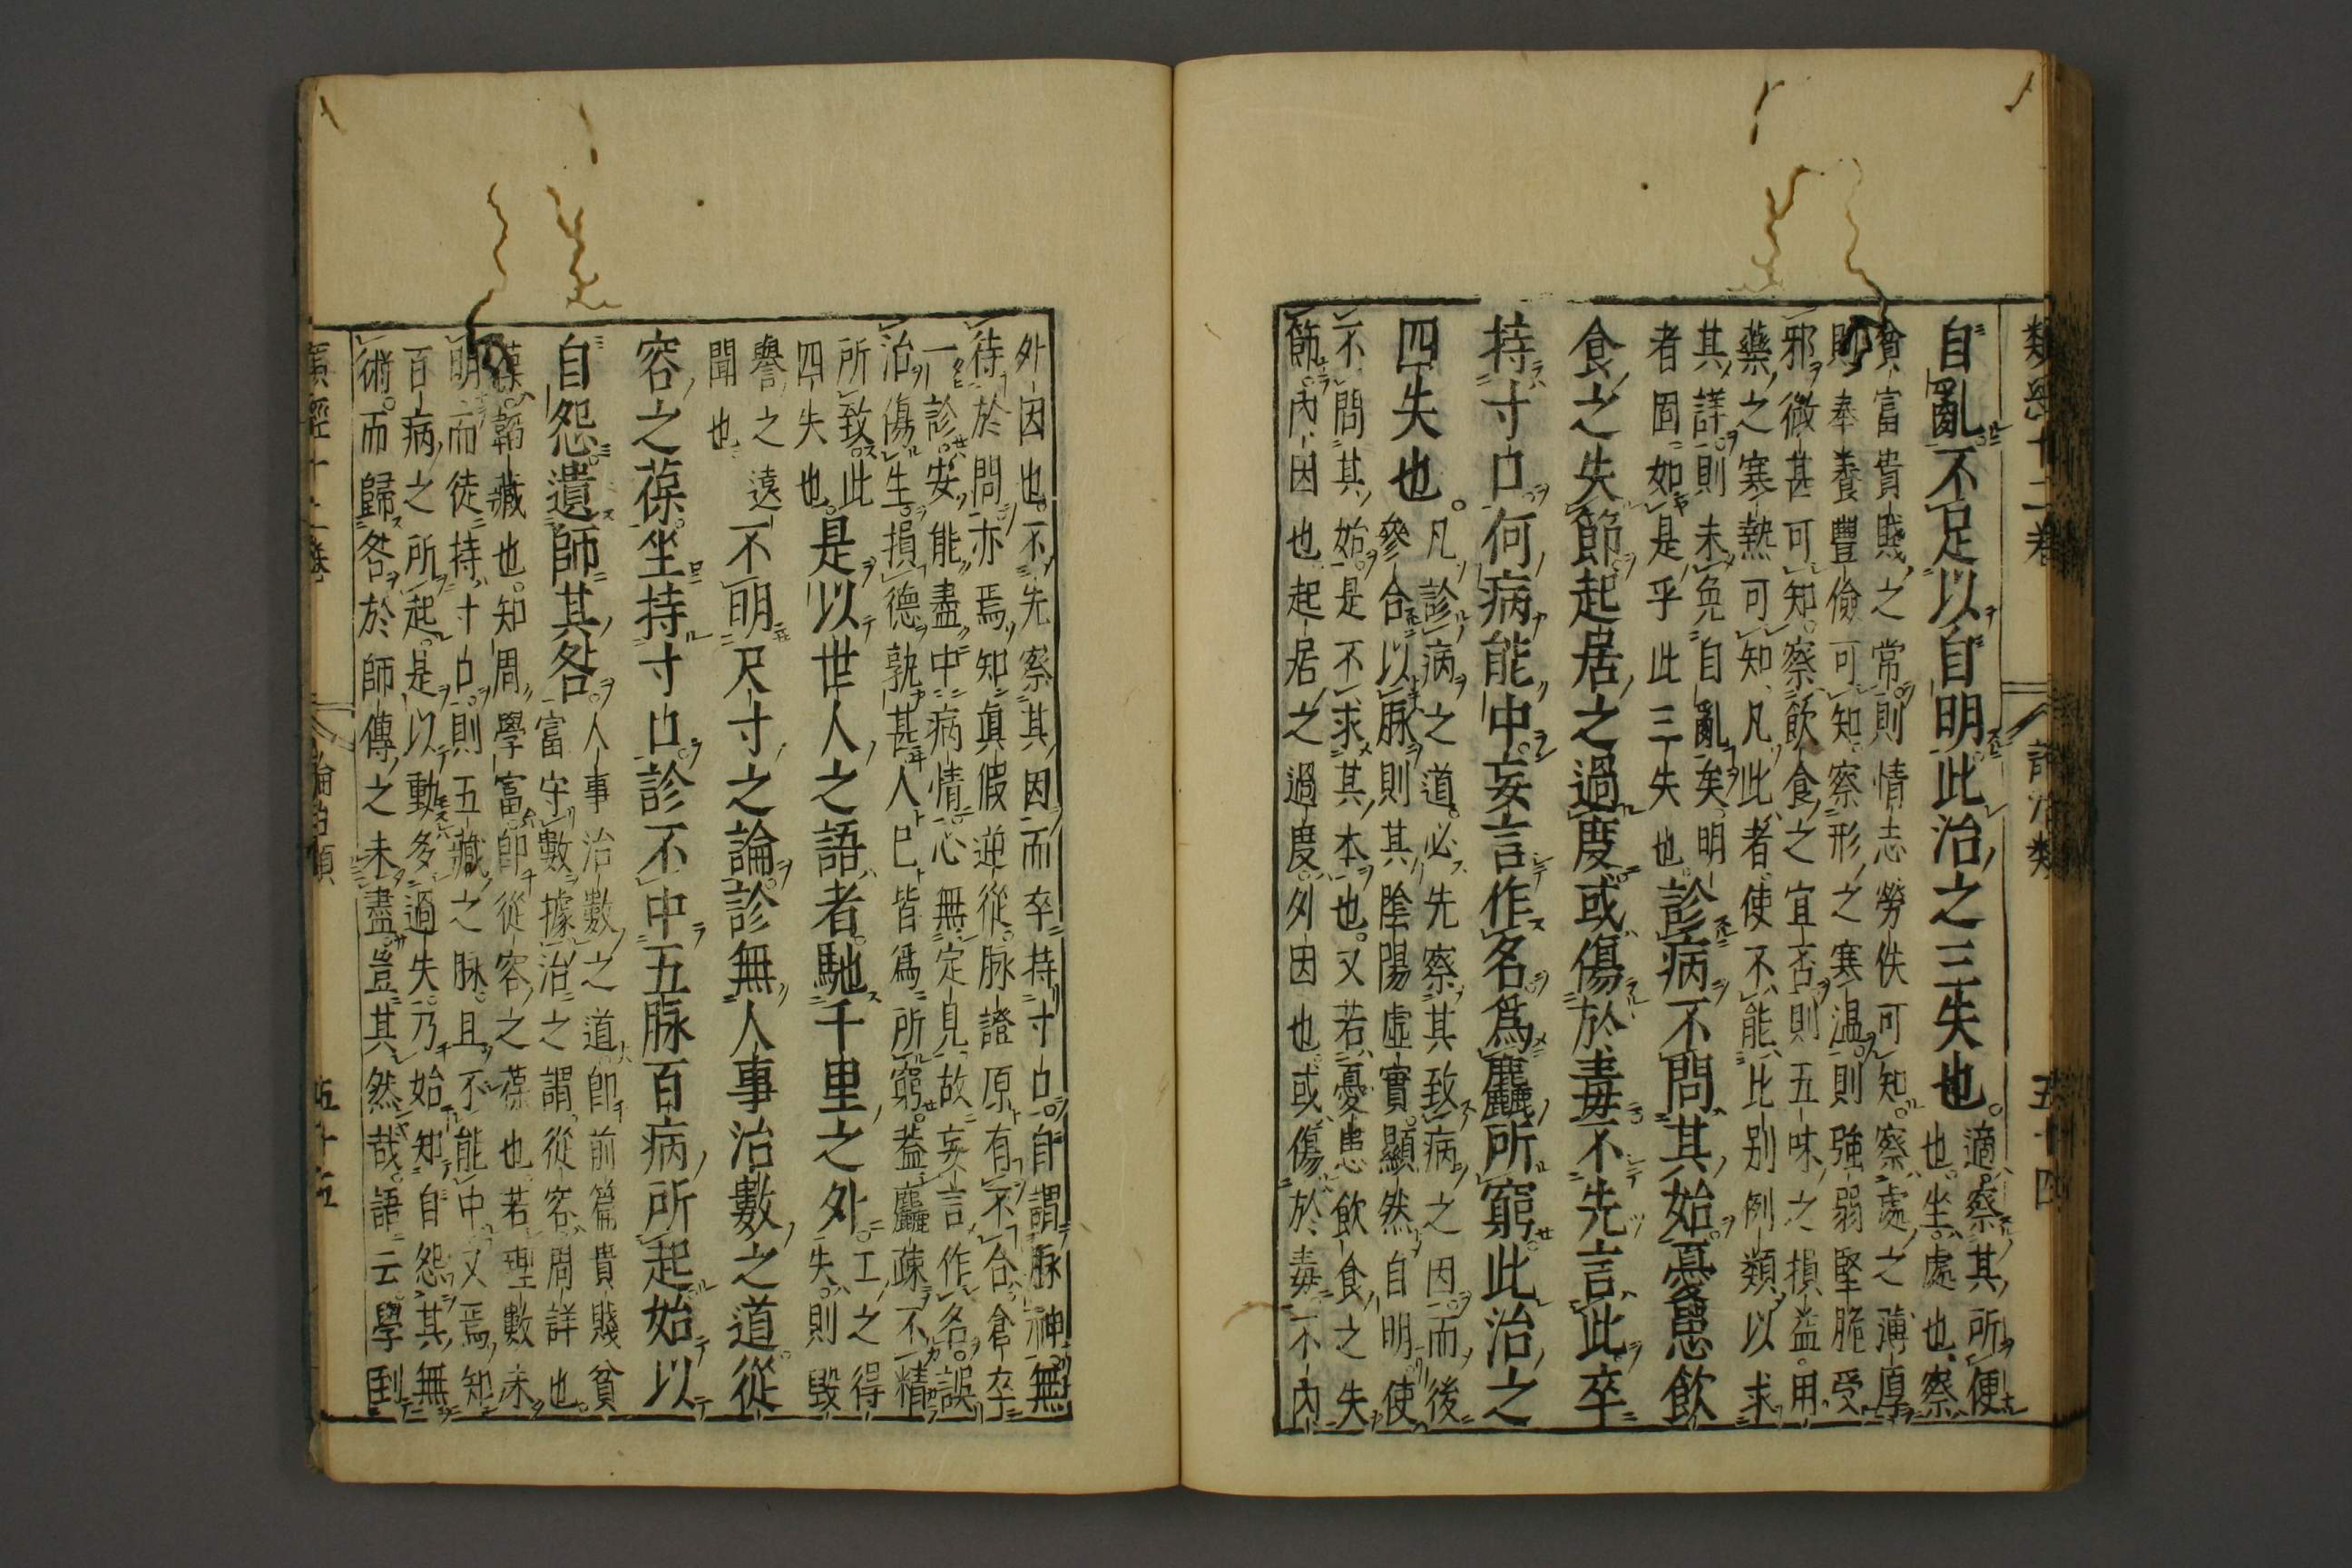 類經十二卷 論治類 五十四
自亂不足以自明此治之三失也。適察其所便
也。坐處也、察
貧富貴賤之常則情志勞佚可知。察處之薄厚
則奉養豐儉可知。察形之寒温。則強弱堅脆受
邪微甚可知。察飲食之宜否則五味之損益。用
藥之寒熱可知、凡此者使不能比别例類以求
其詳則未免自亂矣。明
者固如是乎此三失也。
診病不問其始憂患飲
食之失節起居之過度或傷於毒不先言此卒
持寸口何病能中妄言作名爲麤所窮此治之
四失也。凡診病之道。必先察其致病之因。而後
參合以脉則其陰陽虛實。顯然自明。使
不問其始。是不求其本也。又若憂患飲食之失
節。內因也起居之過度。外因也。或傷於毒不內
外因也。不先察其因而卒持寸口。自謂脉神無
待於問亦焉知眞假逆從。脉證原有不合。倉卒
一診安能盡中病情心無定見。故妄言作名。誤
治傷生。損德孰甚人已皆爲所窮。蓋麤疎不精
所致。此
四失也。
是以世人之語者。馳千里之外。工之得
失則毀
譽之遠
聞也
不明尺寸之論。診無人事治數之道。從
容之葆。坐持寸口。診不中五脉百病所起始以
自怨遺師其咎。人事治數之道。卽前篇貴賤貧
富守數據治之謂。從容周詳也。
葆韜藏也。知周學富卽從容之葆也。若理數未
明而徒持寸口。則五藏之脉。且不能中。又焉知
百病之所起。是以動多過失。乃始知自怨其無
術。而歸咎於師傳之未盡豈其然哉。語云。學到
類經十二卷 論治類 五十五